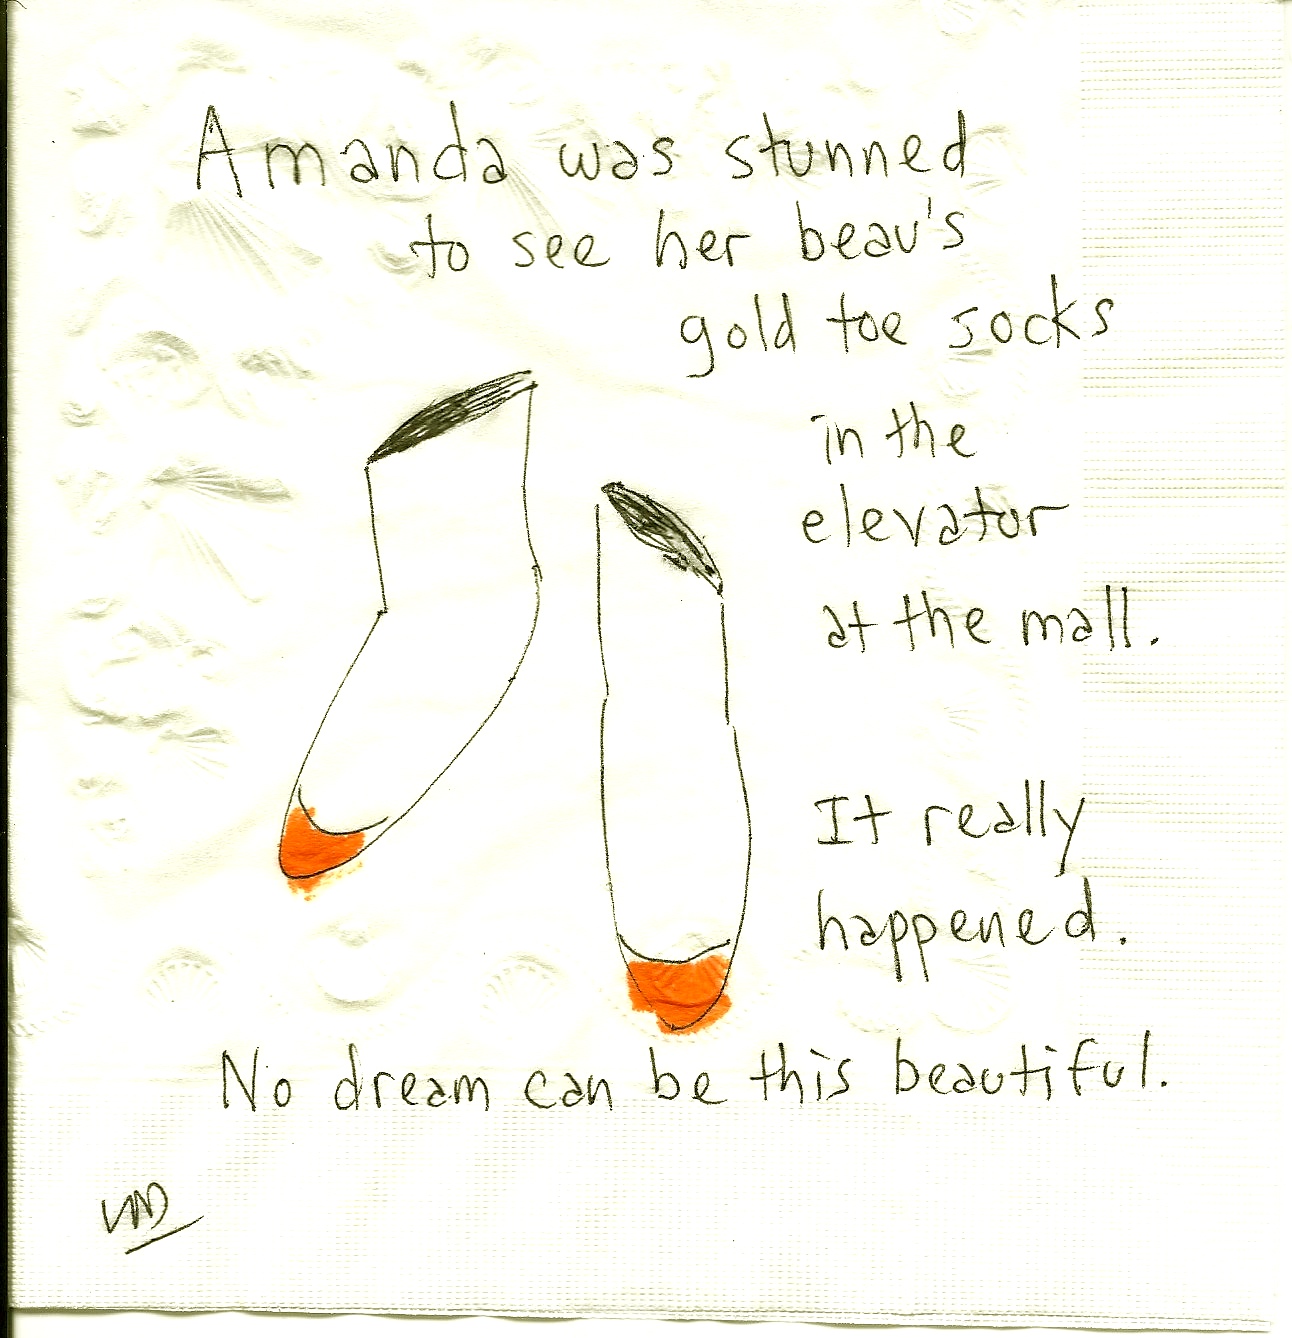 Amanda was stunned
to see her beau's
gold toe socks
in the
elevator
at the mall.
It really
happened.
No dream can be this beautiful.